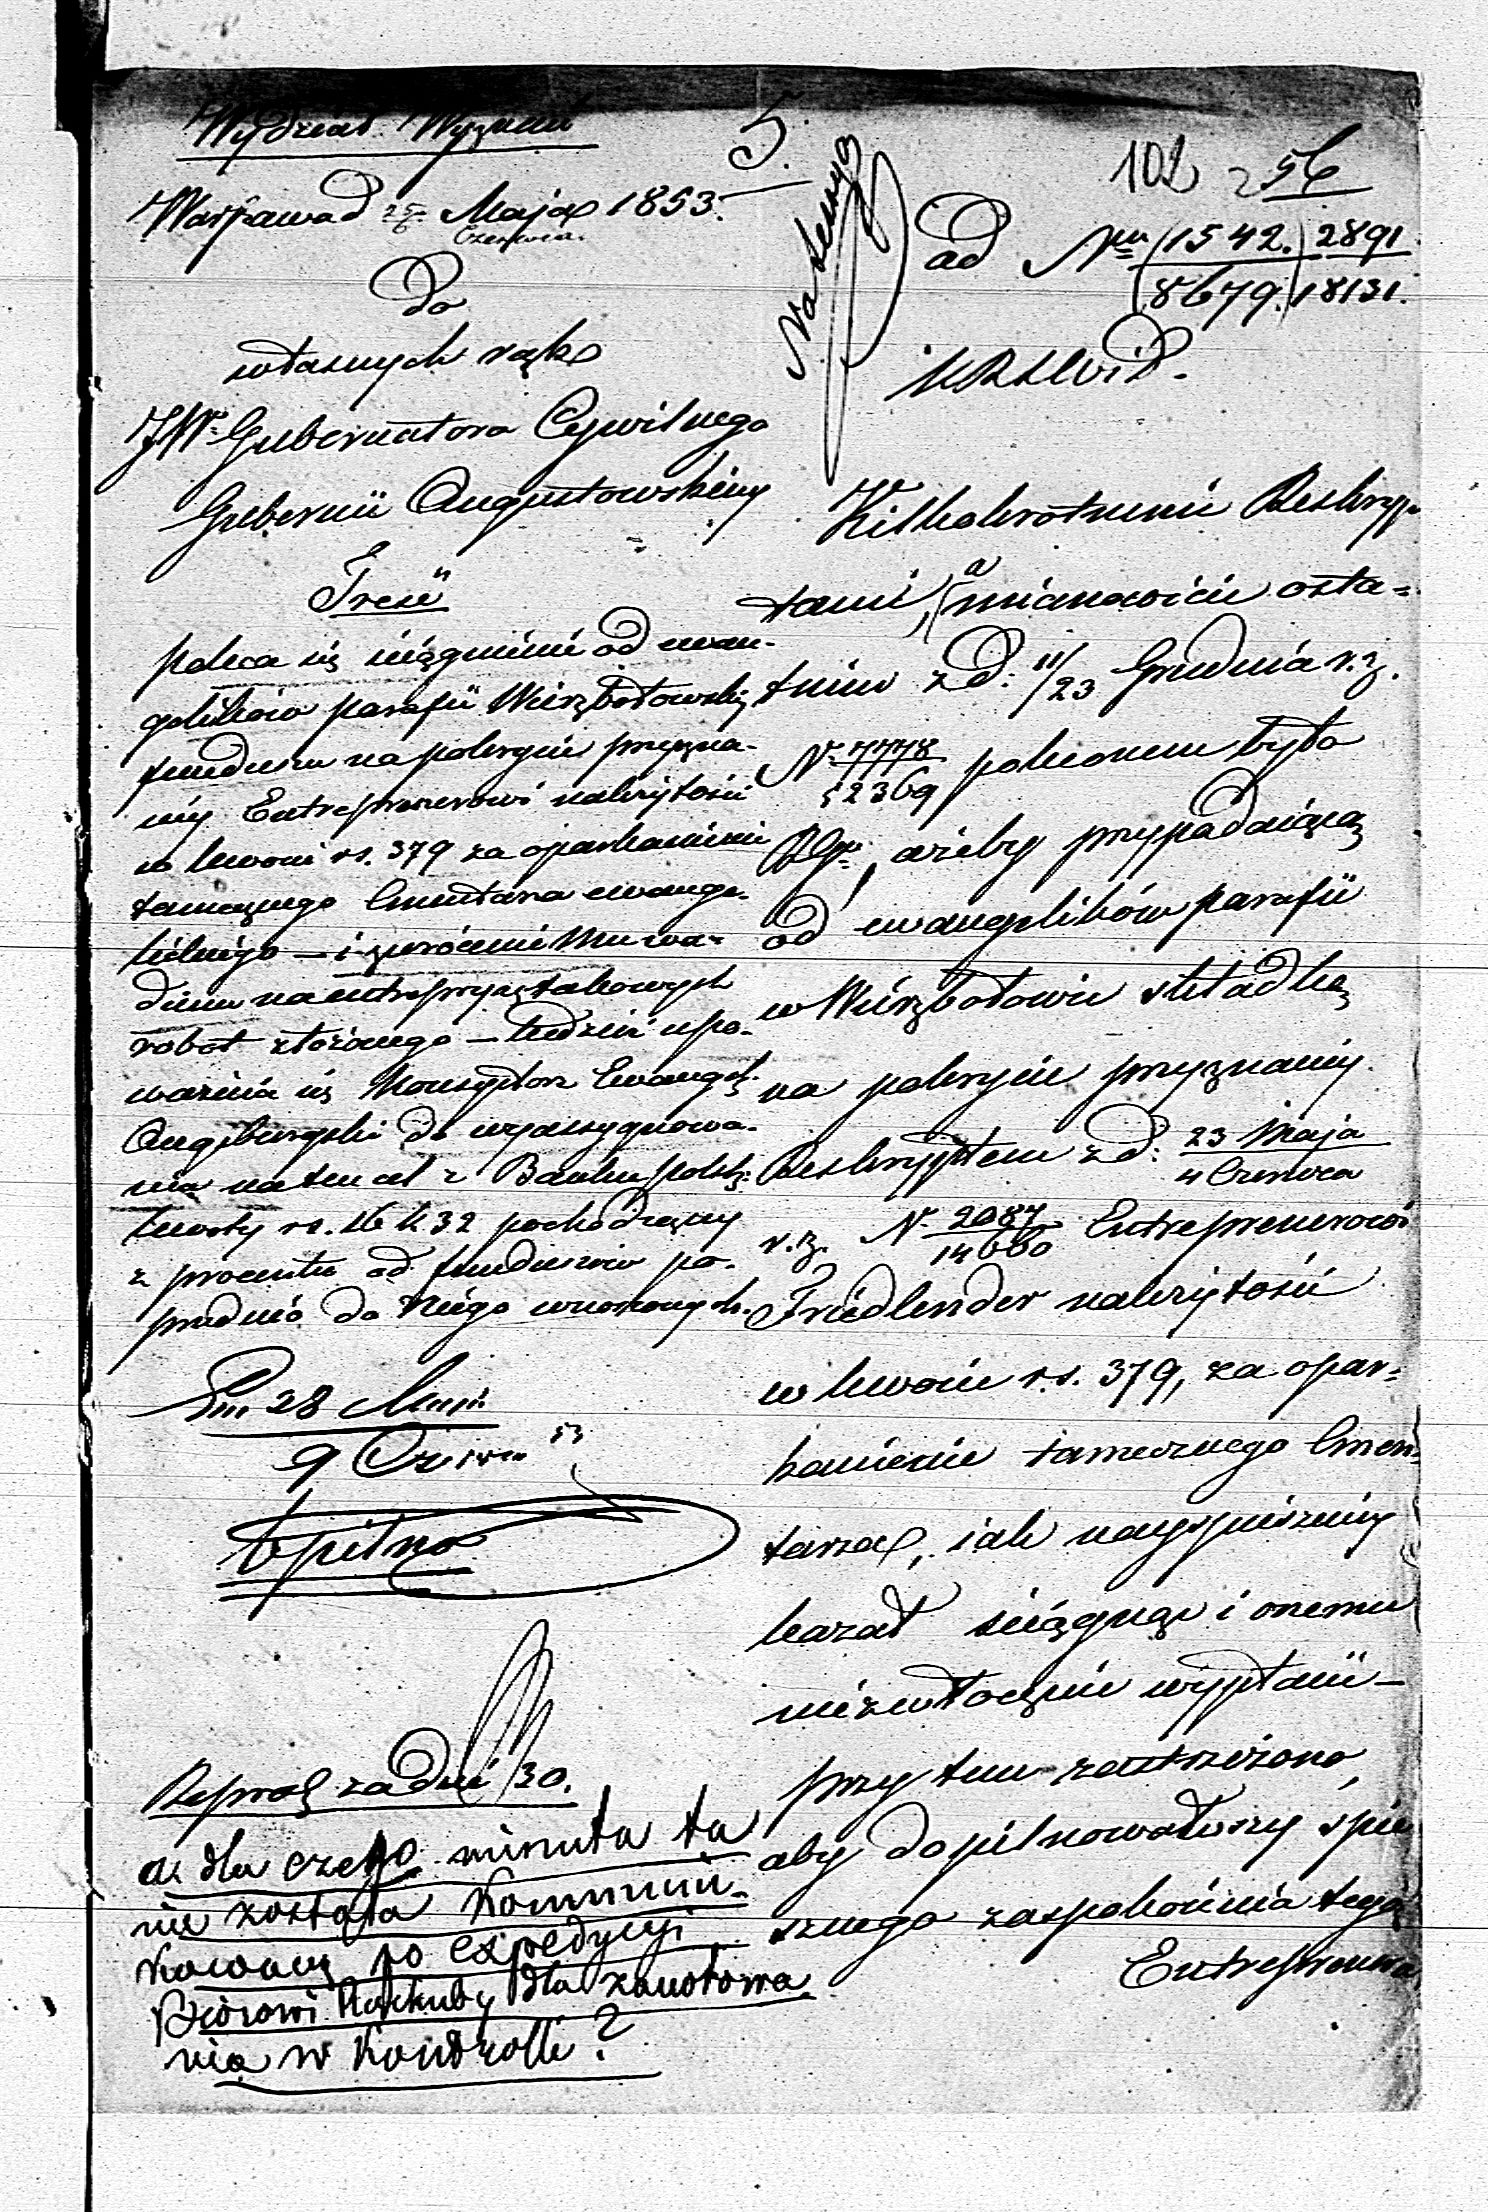 Wydział Wyznań
5.
102 256
Warszawa d Maja 1853.
Czerwca.
ad Nru (1542.) 2891
(8679.) 18131.
Do
własnych rąk
JW. Gubernatora Cywilnego
Gubernii Augustowskiey
Treść
poleca się ściągnienie od ewan-
gelików parafii Wierzbołowskiey
funduszu na pokrycie przyzna-
ney Entreprenerowi należytości
w kwocie rs. 379 za oparkanienie
tamecznego Cmentarza ewange-
lickiego — i zwrócenie Mu wa-
dium na entrepryzę takowych
robot złożonego — tudzież upo-
ważnia się Konsystorz Ewangel.
Augsburgski do wyassygnowa-
nia na ten cel z Banku Polsk.
kwoty rs. 16 k 32 pochodzącey
z procentu od funduszów po-
przednio do Niego wnoszonych.
28 Maja
9 Czerwca 53
pilno
za dni 30.
a dla czego minuta ta
nie została Kommuni-
kowaną po expedycyi
Biórowi Rachuby dla zanotowa
nia w Kontrolli?
Kilkakrotnemi Reskryp-
tami, a mianowicie osta-
tnim z d: 11/23 Grudnia r. z.
N. 7778
52369 poleconem było
RGu, ażeby przypadaiącą
od ewangelików parafii
w Wierzbołowie składkę
na pokrycie przyznaney
Reskryptem z d: 23 Maja
4 Czerwca
r. z. N. 2087
14660 Entreprenerowi
Friedlender należytości
w kwocie r.s. 379, za opar-
kanienie tamecznego Cmen-
tarza, iak nayspieszniey
kazał ściągnąć i onemu
niezwłocznie wypłacić —
przy tem zastrzeżono,
aby dopilnowawszy spie
sznego zaspokoienia tego
Entreprenera